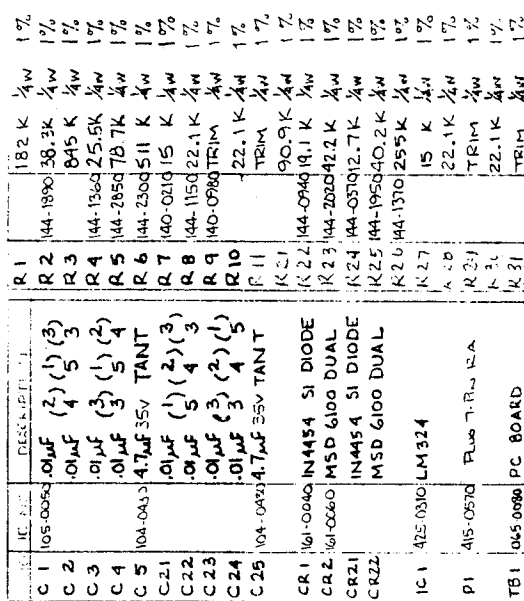 DESCRIPTION
C 1 105-0050 .01µF (2) (1) (3)
C 2 .01µF 4 5 3
C 3 .01µF (3) (1) (2)
C 4 .01µF 3 5 4
C 5 104-0430 4.7µF 35V TANT
C21 .01µF (1) (2) (3)
C22 .01µF 5 4 3
C23 .01µF (3) (2) (1)
C24 .01µF 3 4 5
C25 104-0430 4.7µF 35V TANT
CR1 161-0040 IN4454 SI DIODE
CR2 161-0060 MSD 6100 DUAL
CR21 IN4454 SI DIODE
CR22 MSD 6100 DUAL
IC1 425-0310 LM324
P1 415-0570 PLUG 7-PIN RA
TB1 065-0080 PC BOARD
R 1 182 K ¼W 1%
R 2 144-1890 38.3K ¼W 1%
R 3 845 K ¼W 1%
R 4 144-1360 25.5K ¼W 1%
R 5 144-2850 78.7K ¼W 1%
R 6 144-2300 511 K ¼W 1%
R 7 140-0210 15 K ¼W 1%
R 8 144-1150 22.1K ¼W 1%
R 9 140-0980 TRIM ¼W 1%
R10 22.1K ¼W 1%
R11 TRIM ¼W 1%
R21 90.9K ¼W 1%
R22 144-0940 19.1K ¼W 1%
R23 144-2020 42.2K ¼W 1%
R24 144-0370 12.7K ¼W 1%
R25 144-1950 40.2K ¼W 1%
R26 144-1370 255K ¼W 1%
R27 15 K ¼W 1%
R28 22.1K ¼W 1%
R29 TRIM ¼W 1%
R30 22.1K ¼W 1%
R31 TRIM ¼W 1%